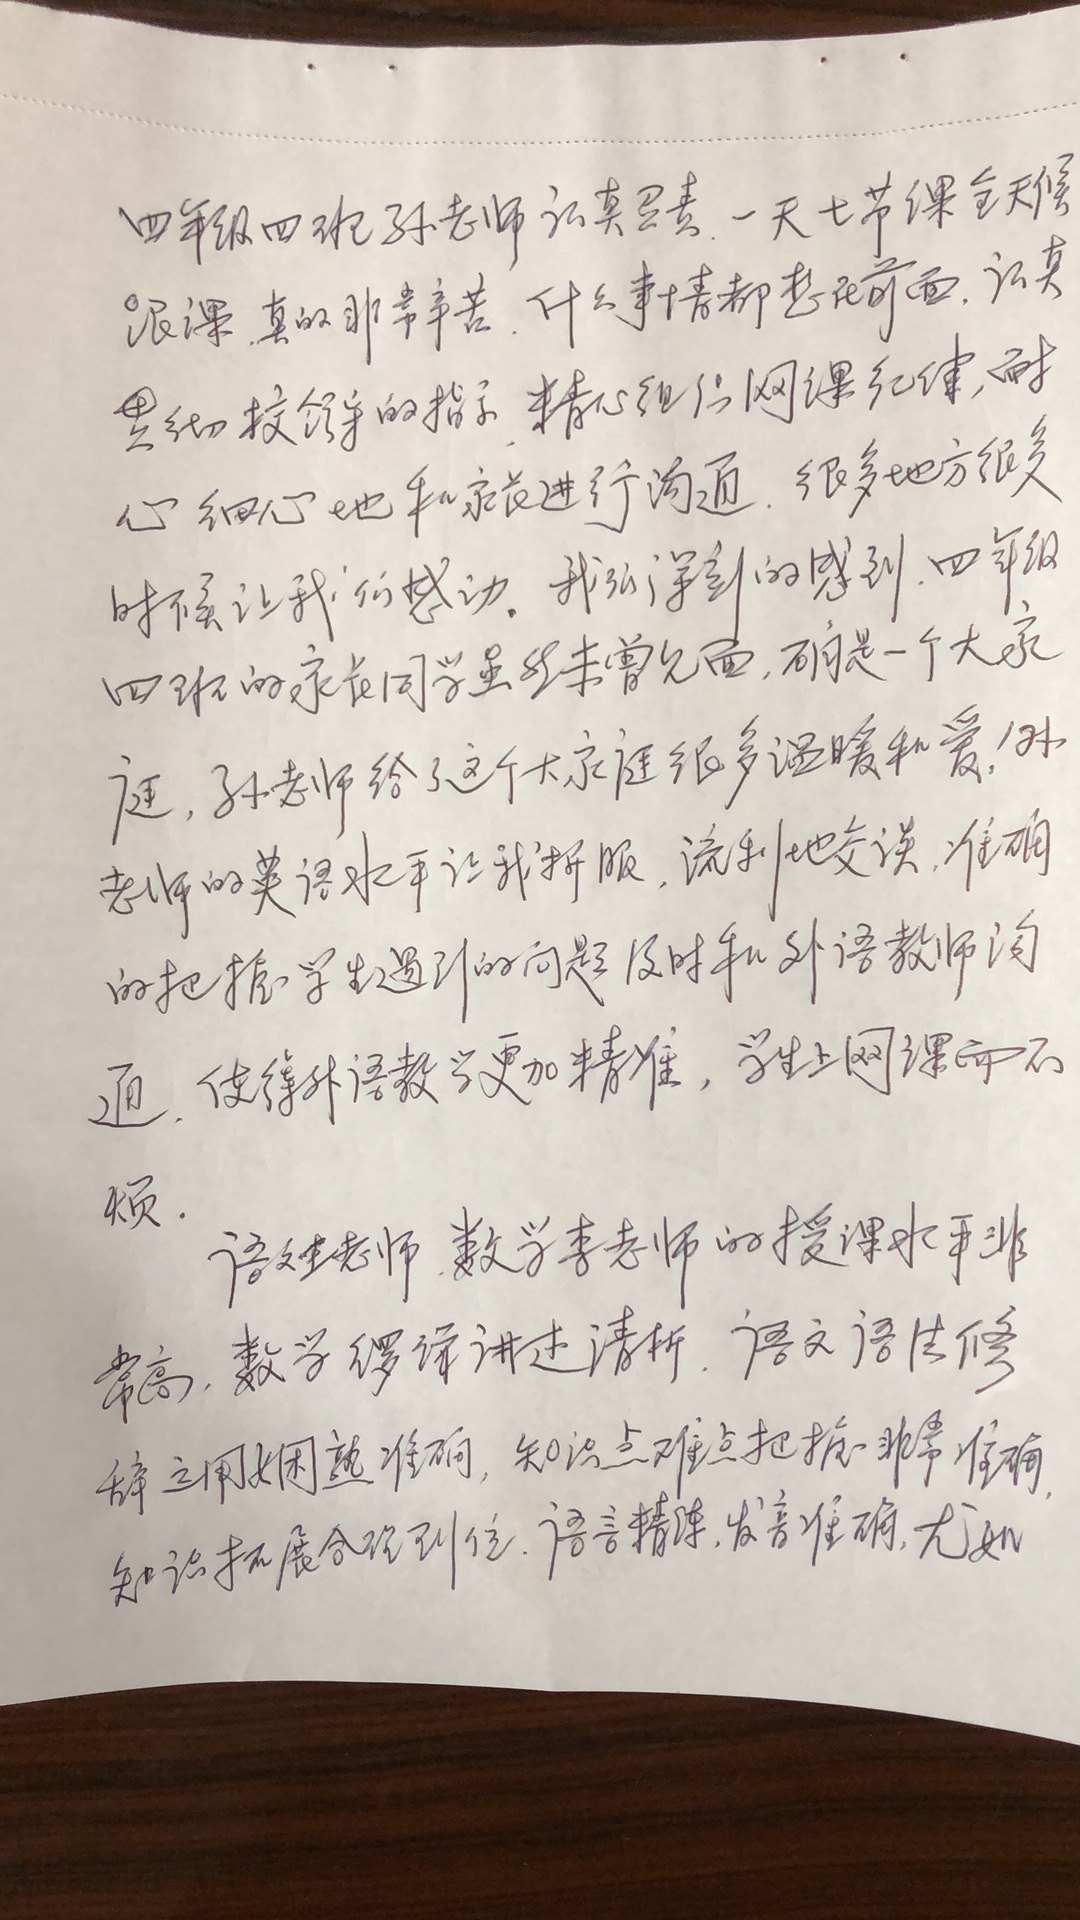 四年级四班孙老师认真负责、一天七节课全天候
跟课、真的非常辛苦、什么事情都想在前面、认真
贯彻校领导的指示、精心组织网课纪律、耐
心细心地和家长进行沟通、很多地方很多
时候让我们感动。我深刻的感到、四年级
四班的家长同学虽然未曾见面、确是一个大家
庭、孙老师给了这个大家庭很多温暖和爱!孙
老师的英语水平让我折服、流利地交谈、准确
的把握学生遇到的问题及时和外语教师沟
通、使得外语教学更加精准,学生上网课而不
烦.
语文老师、数学李老师的授课水平非
常高、数学逻缉讲述清析、语文语法修
辞应用娴熟准确,知识点难点把握非常准确、
知识拓展合理到位、语言精练、发音准确、尤如